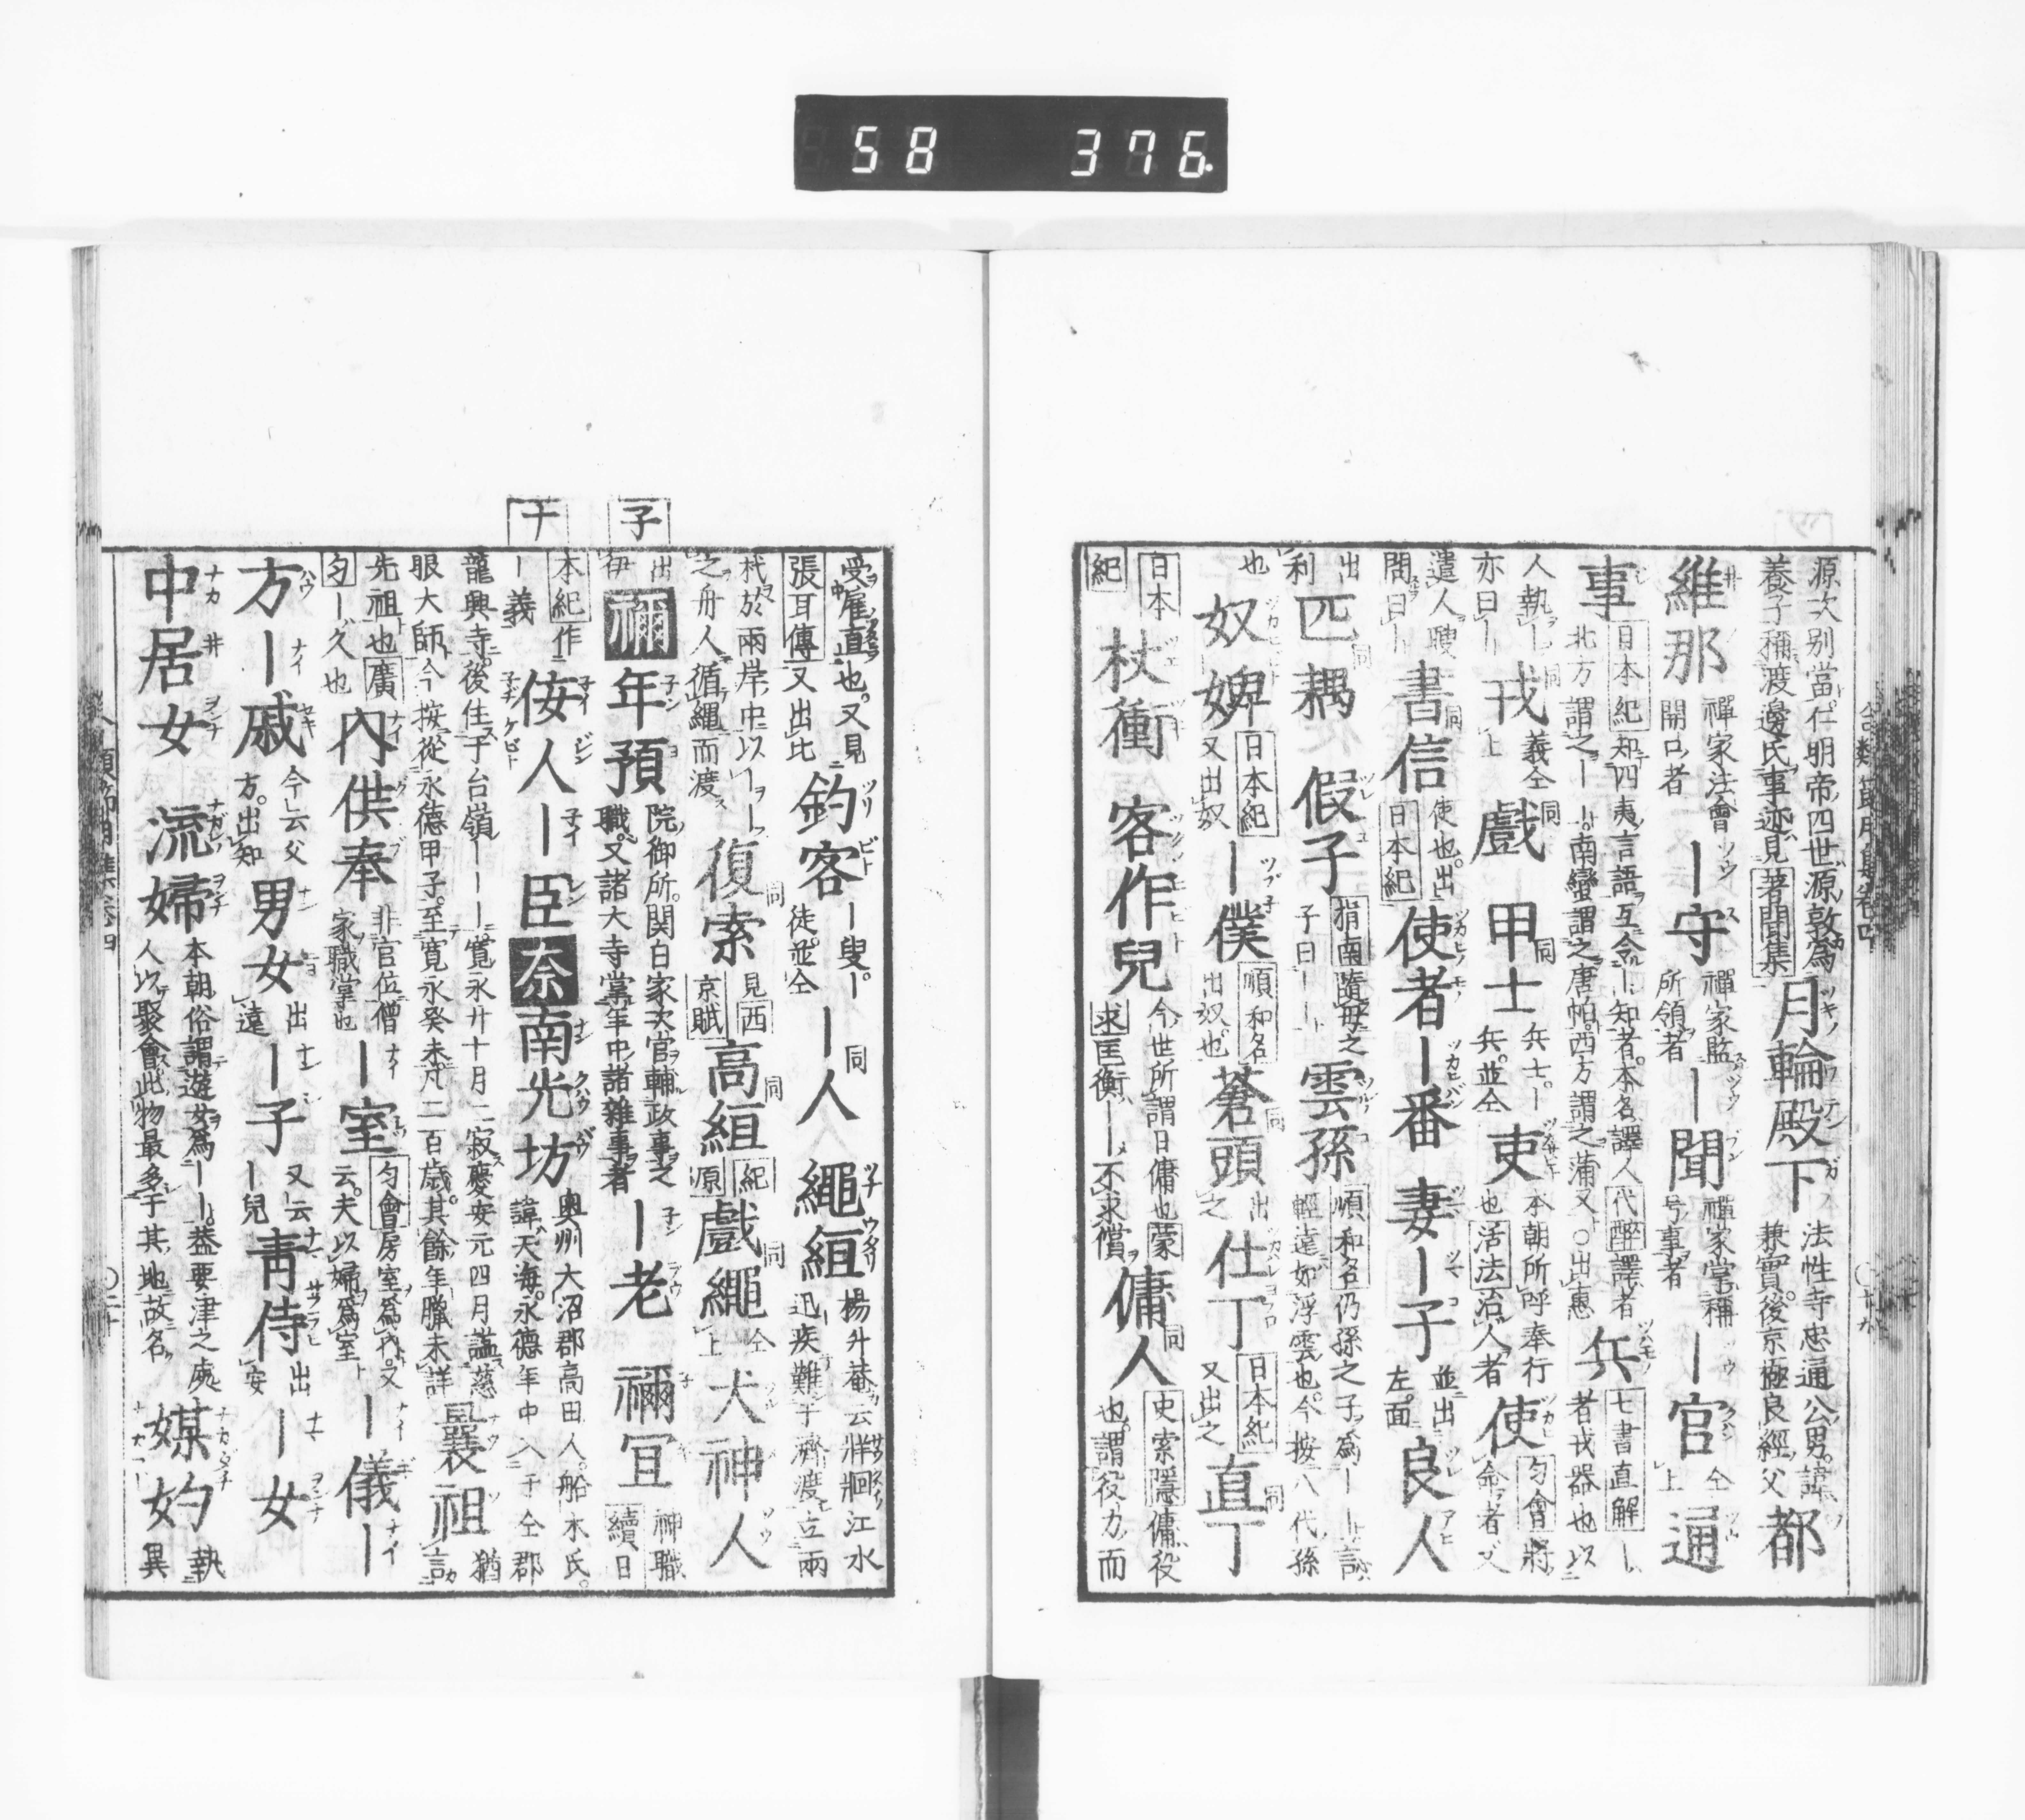 58 376.
源次別當。仁明帝四世源敦為
養子。禰渡邊氏事迹見著聞集
月輪殿下
法性寺忠通公男。諱
兼實。後京極良經父
都
維那
禪家法會
開口者
｜守
禪家監
所領者
｜聞
禪家掌稱
号事者
｜官
仝上
通
事
日本紀知四夷言語互令｜知者。本名譯人代醉譯者
北方謂之｜｜。南蠻謂之唐帕。西方謂之蒲又○出惠
兵
七書直解｜
者戎器也以
人執｜
亦曰｜
戎
義仝
上
戲
同
甲士
同
兵士｜
兵。並仝
吏
本朝所呼奉行
也活法治人者
使
匀會將
命者又
遣人聘
問曰｜
書信
使也。出
日本紀
使者
｜番
妻｜子
並出
左。面
良人
出
利
匹耦
同
假子
指南隨母之
子曰｜｜
雲孫
順和名仍孫之子為｜｜
輕遠如浮雲也。今按八代孫
也
奴婢
日本紀
又出奴
｜僕
順和名
出奴也
蒼頭
同
出
之
仕丁
日本紀
又出之
直丁
同
日本
紀
杖衝
客作兒
今世所謂日傭也蒙
求匡衡｜｜不求償
傭人
同
史索隱傭役
也。謂役力而
受雇直也。又見
張耳傳又出比
釣客
｜叟。
徒並仝
｜人
同
繩縆
楊升菴云牂牁江水
迅疾難于濟渡立兩
杙於兩岸中以｜｜
之舟人循繩而渡
復索
同
見西
京賦
高縆
同
紀
原
戲繩
同
仝
上
犬神人
子
出
伊
禰
年預
院御所。関白家次官輔政事之
職。又諸大寺掌年中諸雜事者
｜老
禰冝
神職
續日
ナ
本紀作
｜義
侫人
｜臣
奈
南光坊
奥州大沼郡高田人。船木氏。
諱天海。永德年中入于仝郡
龍興寺。後住于台嶺｜｜｜。寬永廿十月二寂慶安元四月謚慈
眼大師今按從永德甲子。至寬永癸未。凡二百歲。其餘年臘未詳
曩祖
猶
言
先祖也廣
匀｜久也
內供奉
非官位僧
家職掌也
｜室
匀會房室為
云。夫以婦為室
｜儀｜
方｜戚
今云父
方。出知
男女
出
遠
｜子
又云
｜兒
靑侍
出
安
｜女
中居女
流婦
本朝俗謂遊女為｜｜。蓋要津之處
人以聚會此物最多于其地故名
媒妁
執
異